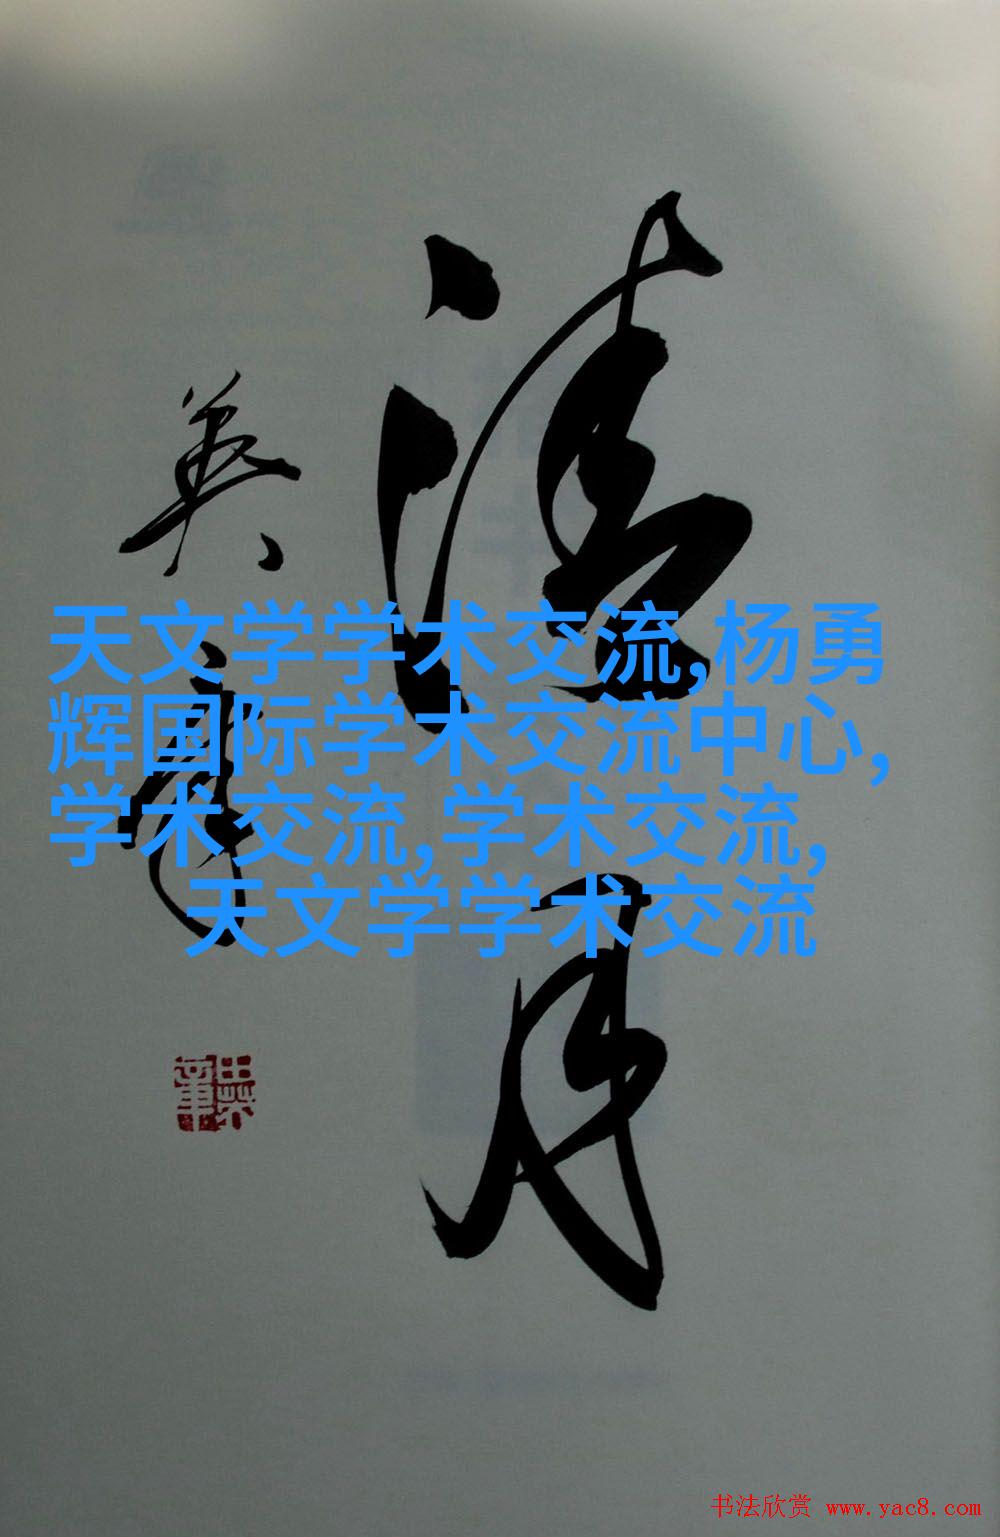 清月
英章
天文学学术交流,杨勇
辉国际学术交流中心,
学术交流,学术交流,
天文学学术交流
书法欣赏 www.yac8.com